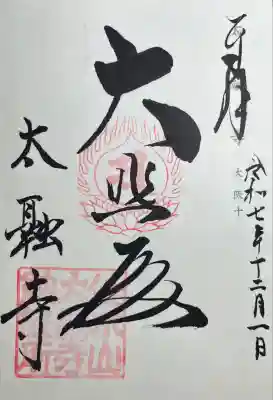 奉拝
令和七年十二月一日
大悲殿
太融寺